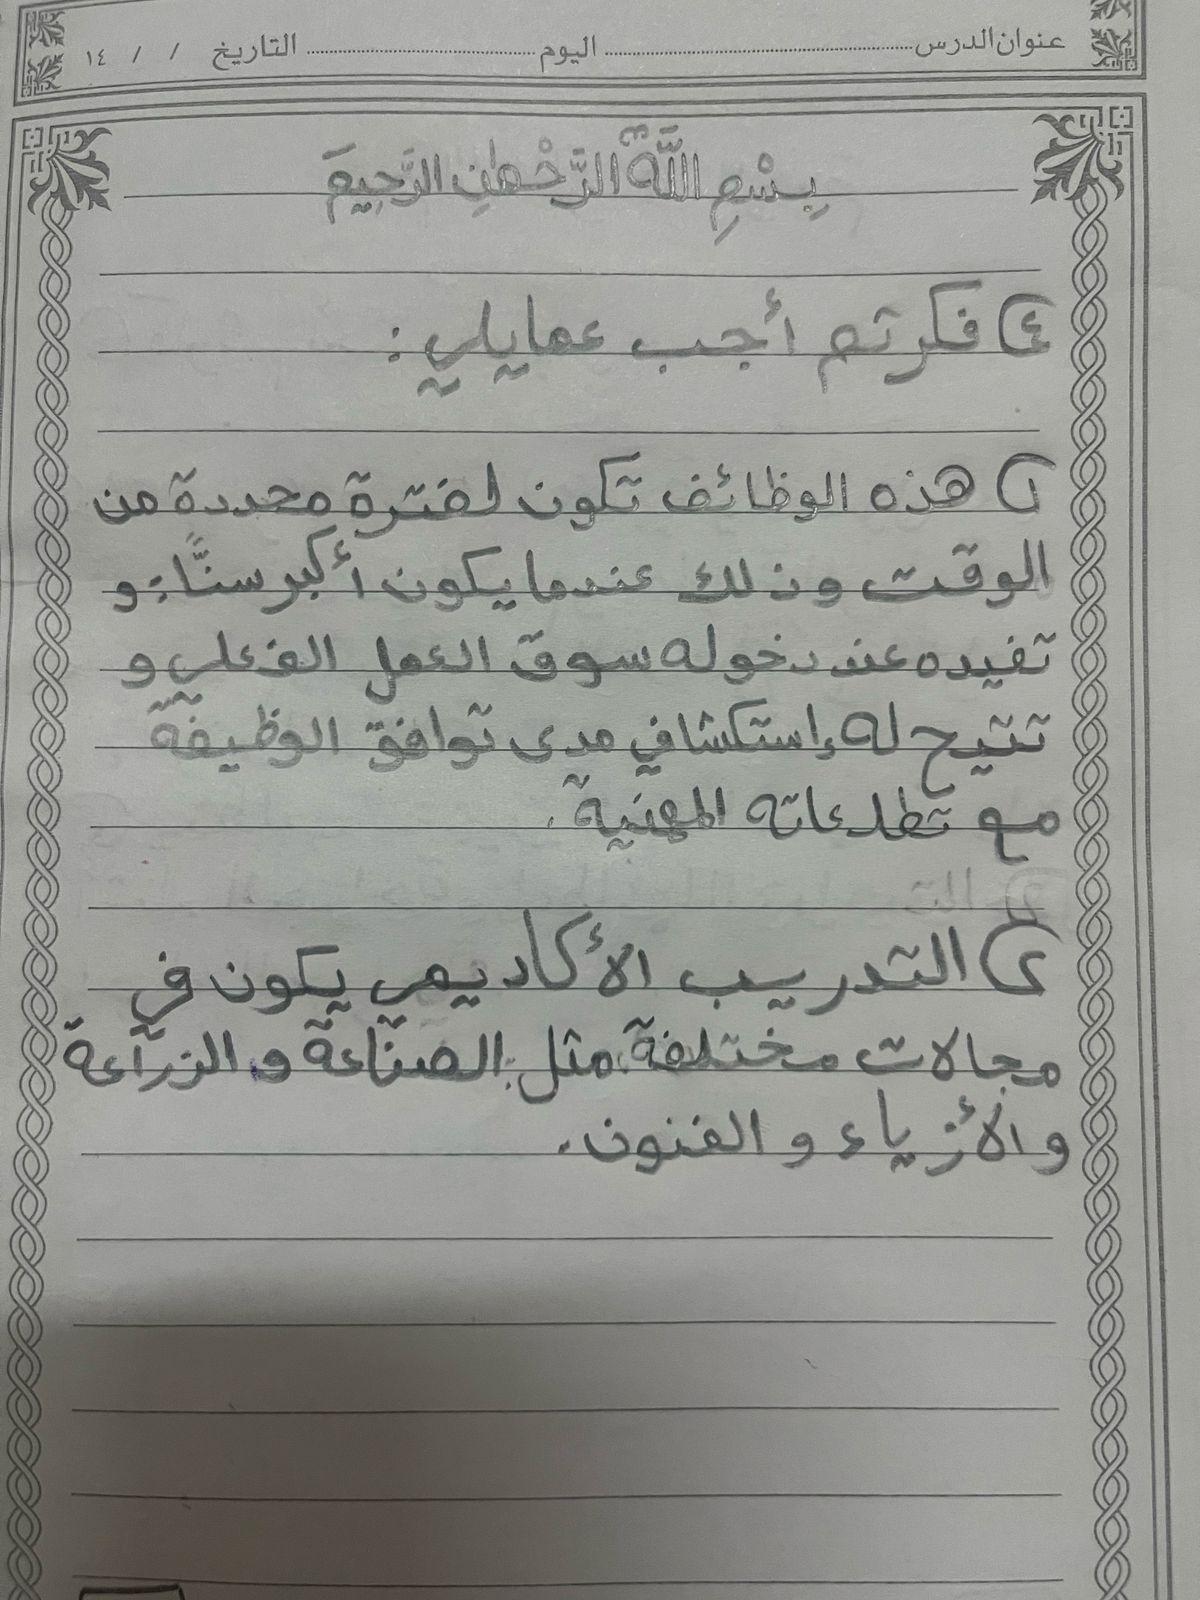 عنوان الدرس اليوم التاريخ / / ١٤
بِسْمِ اللَّهِ الرَّحْمٰنِ الرَّحِيمِ
٤) فكر ثم أجب عمايلي :
١) هذه الوظائف تكون لفترة محددة من
الوقت وذلك عندما يكون أكبر سنًّا، و
تفيده عند دخوله سوق العمل الفعلي و
تتيح له إستكشافي مدى توافق الوظيفة
مع تطلعاته المهنية .
٢) التدريب الأكاديمي يكون في
مجالات مختلفة مثل الصناعة و الزراعة
و الأزياء و الفنون .